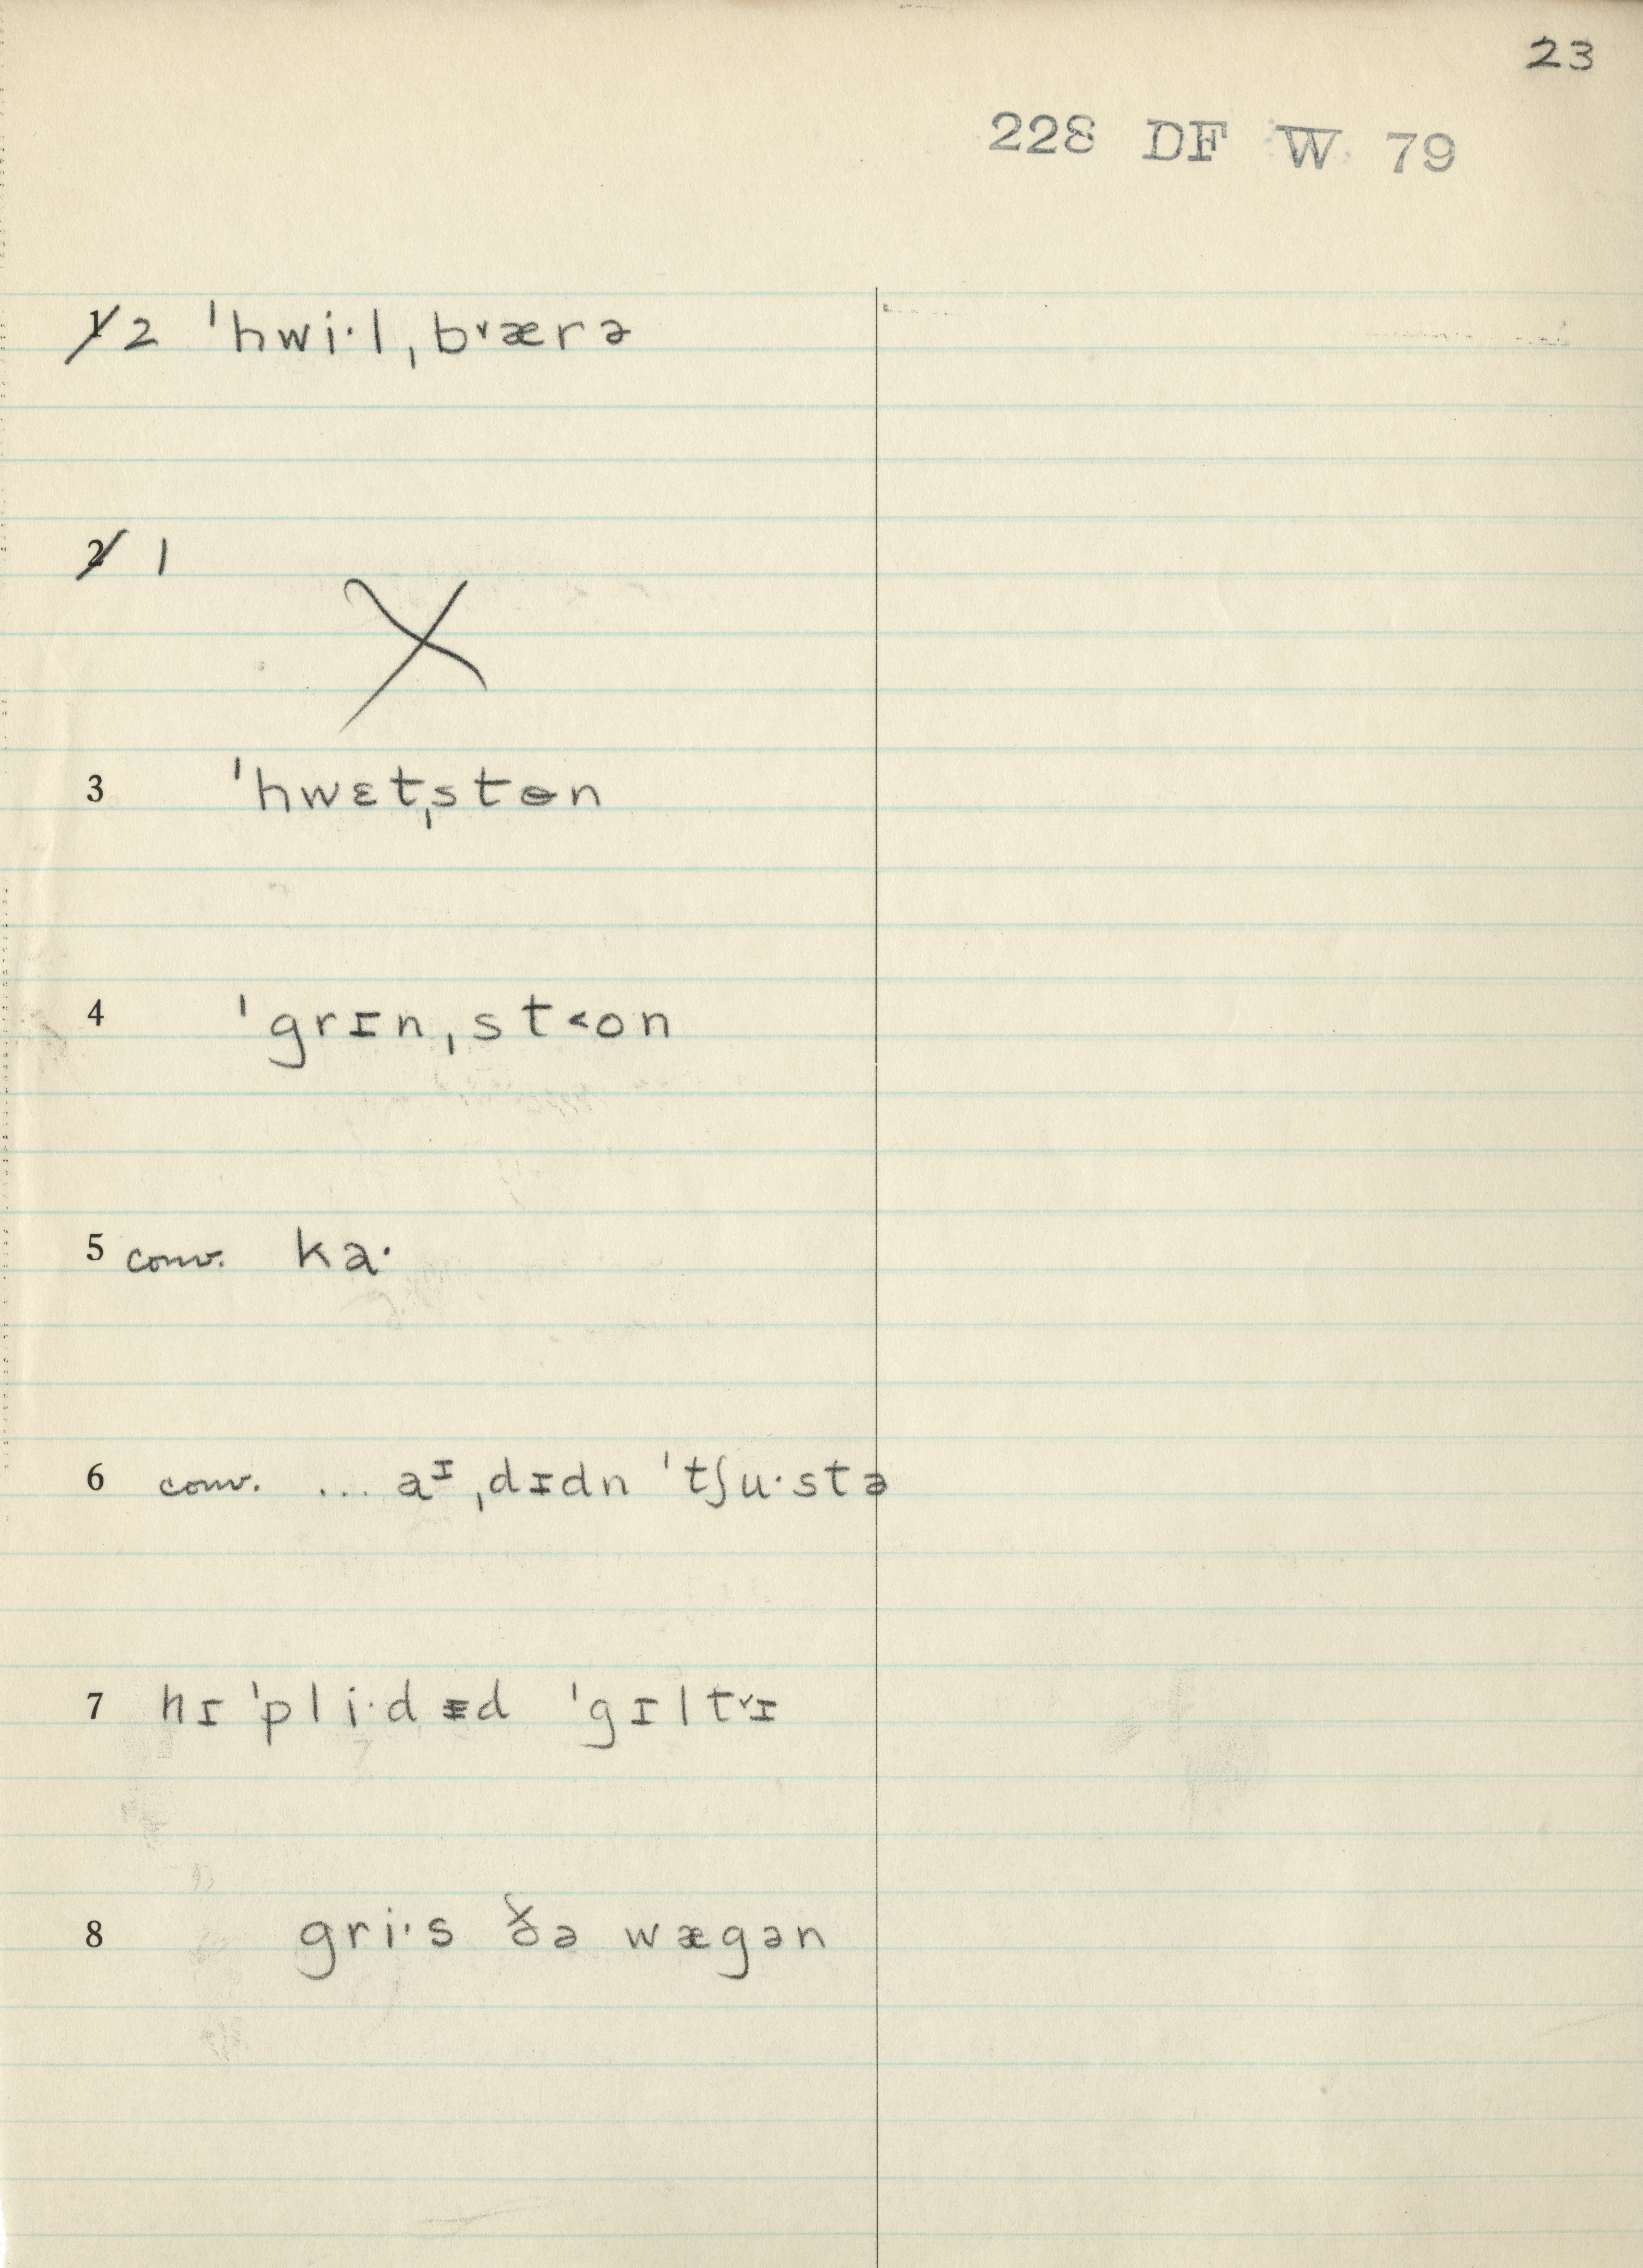 23
228 DF W 79
1 2 ˈhwi·l ˌb˅ærə
2 1
X
3 ˈhwɛtˌstɵn
4 ˈgrɪnˌst˂on
5 conv. ka·
6 conv. ... aᶦ ˌdɪdn ˈtʃu·stə
7 hɪ ˈpli·dᵻd ˈgɪlt˅ɪ
8 gri·s ðə wægən